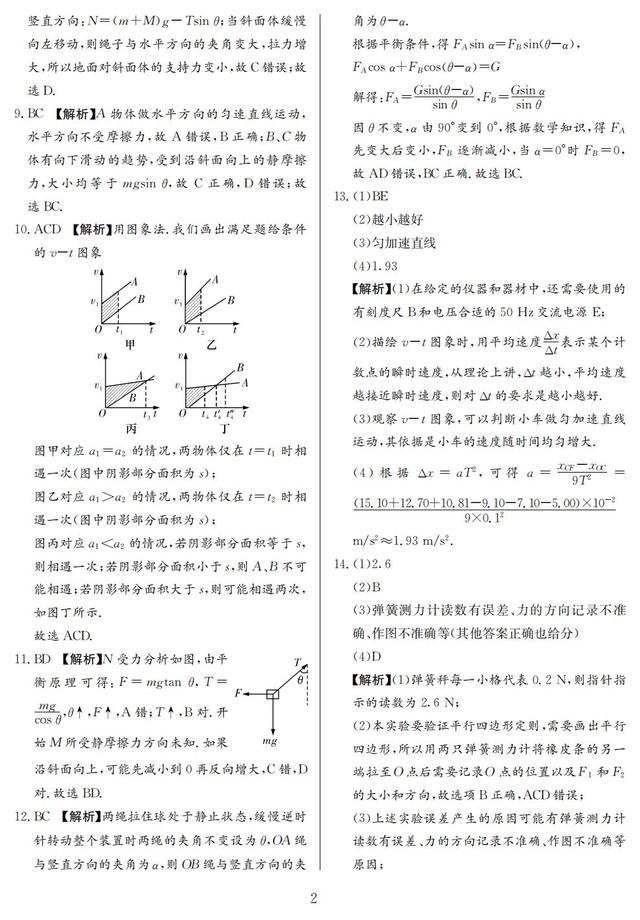 竖直方向:N=(m+M)g-Tsin θ;当斜面体缓慢
向左移动,则绳子与水平方向的夹角变大,拉力增
大,所以地面对斜面体的支持力变小,故C错误;故
选D.
9. BC 【解析】A 物体做水平方向的匀速直线运动,
水平方向不受摩擦力,故 A 错误,B 正确;B、C 物
体有向下滑动的趋势,受到沿斜面向上的静摩擦
力,大小均等于 mgsin θ,故 C 正确,D 错误;故
选 BC.
10. ACD 【解析】用图象法.我们画出满足题给条件
的 v-t 图象
v v₁ A B O t₁ t
甲
v v₁ A B O t₂ t
乙
v v₁ A B O t₃ t
丙
v v₁ B A O t₄ t₄′ t₄″ t
丁
图甲对应 a₁=a₂ 的情况,两物体仅在 t=t₁ 时相
遇一次(图中阴影部分面积为 s);
图乙对应 a₁>a₂ 的情况,两物体仅在 t=t₂ 时相
遇一次(图中阴影部分面积为 s);
图丙对应 a₁<a₂ 的情况,若阴影部分面积等于 s,
则相遇一次;若阴影部分面积小于 s,则 A、B 不可
能相遇;若阴影部分面积大于 s,则可能相遇两次,
如图丁所示.
故选 ACD.
11. BD 【解析】N 受力分析如图,由平
衡原理可得:F=mgtan θ,T=
mg/cos θ,θ↑,F↑,A 错;T↑,B 对.开
始 M 所受静摩擦力方向未知.如果
T θ F mg
沿斜面向上,可能先减小到 0 再反向增大,C 错,D
对.故选 BD.
12. BC 【解析】两绳拉住球处于静止状态,缓慢逆时
针转动整个装置时两绳的夹角不变设为 θ,OA 绳
与竖直方向的夹角为 α,则 OB 绳与竖直方向的夹
角为 θ-α.
根据平衡条件,得 F_A sin α=F_B sin(θ-α),
F_A cos α+F_B cos(θ-α)=G
解得:F_A=Gsin(θ-α)/sin θ,F_B=Gsin α/sin θ
因 θ 不变,α 由 90°变到 0°,根据数学知识,得 F_A
先变大后变小,F_B 逐渐减小,当 α=0°时 F_B=0,
故 AD 错误,BC 正确.故选 BC.
13. (1)BE
(2)越小越好
(3)匀加速直线
(4)1.93
【解析】(1)在给定的仪器和器材中,还需要使用的
有刻度尺 B 和电压合适的 50 Hz 交流电源 E;
(2)描绘 v-t 图象时,用平均速度Δx/Δt表示某个计
数点的瞬时速度,从理论上讲,Δt 越小,平均速度
越接近瞬时速度,则对 Δt 的要求是越小越好.
(3)观察 v-t 图象,可以判断小车做匀加速直线
运动,其依据是小车的速度随时间均匀增大.
(4) 根据 Δx = aT², 可得 a = (x_CF-x_OC)/9T² =
(15.10+12.70+10.81-9.10-7.10-5.00)×10⁻²/9×0.1²
m/s²≈1.93 m/s².
14. (1)2.6
(2)B
(3)弹簧测力计读数有误差、力的方向记录不准
确、作图不准确等(其他答案正确也给分)
(4)D
【解析】(1)弹簧秤每一小格代表 0.2 N,则指针指
示的读数为 2.6 N;
(2)本实验要验证平行四边形定则,需要画出平行
四边形,所以用两只弹簧测力计将橡皮条的另一
端拉至O点后需要记录O点的位置以及F₁ 和 F₂
的大小和方向,故选项 B 正确,ACD错误;
(3)上述实验误差产生的原因可能有弹簧测力计
读数有误差、力的方向记录不准确、作图不准确等
原因;
2